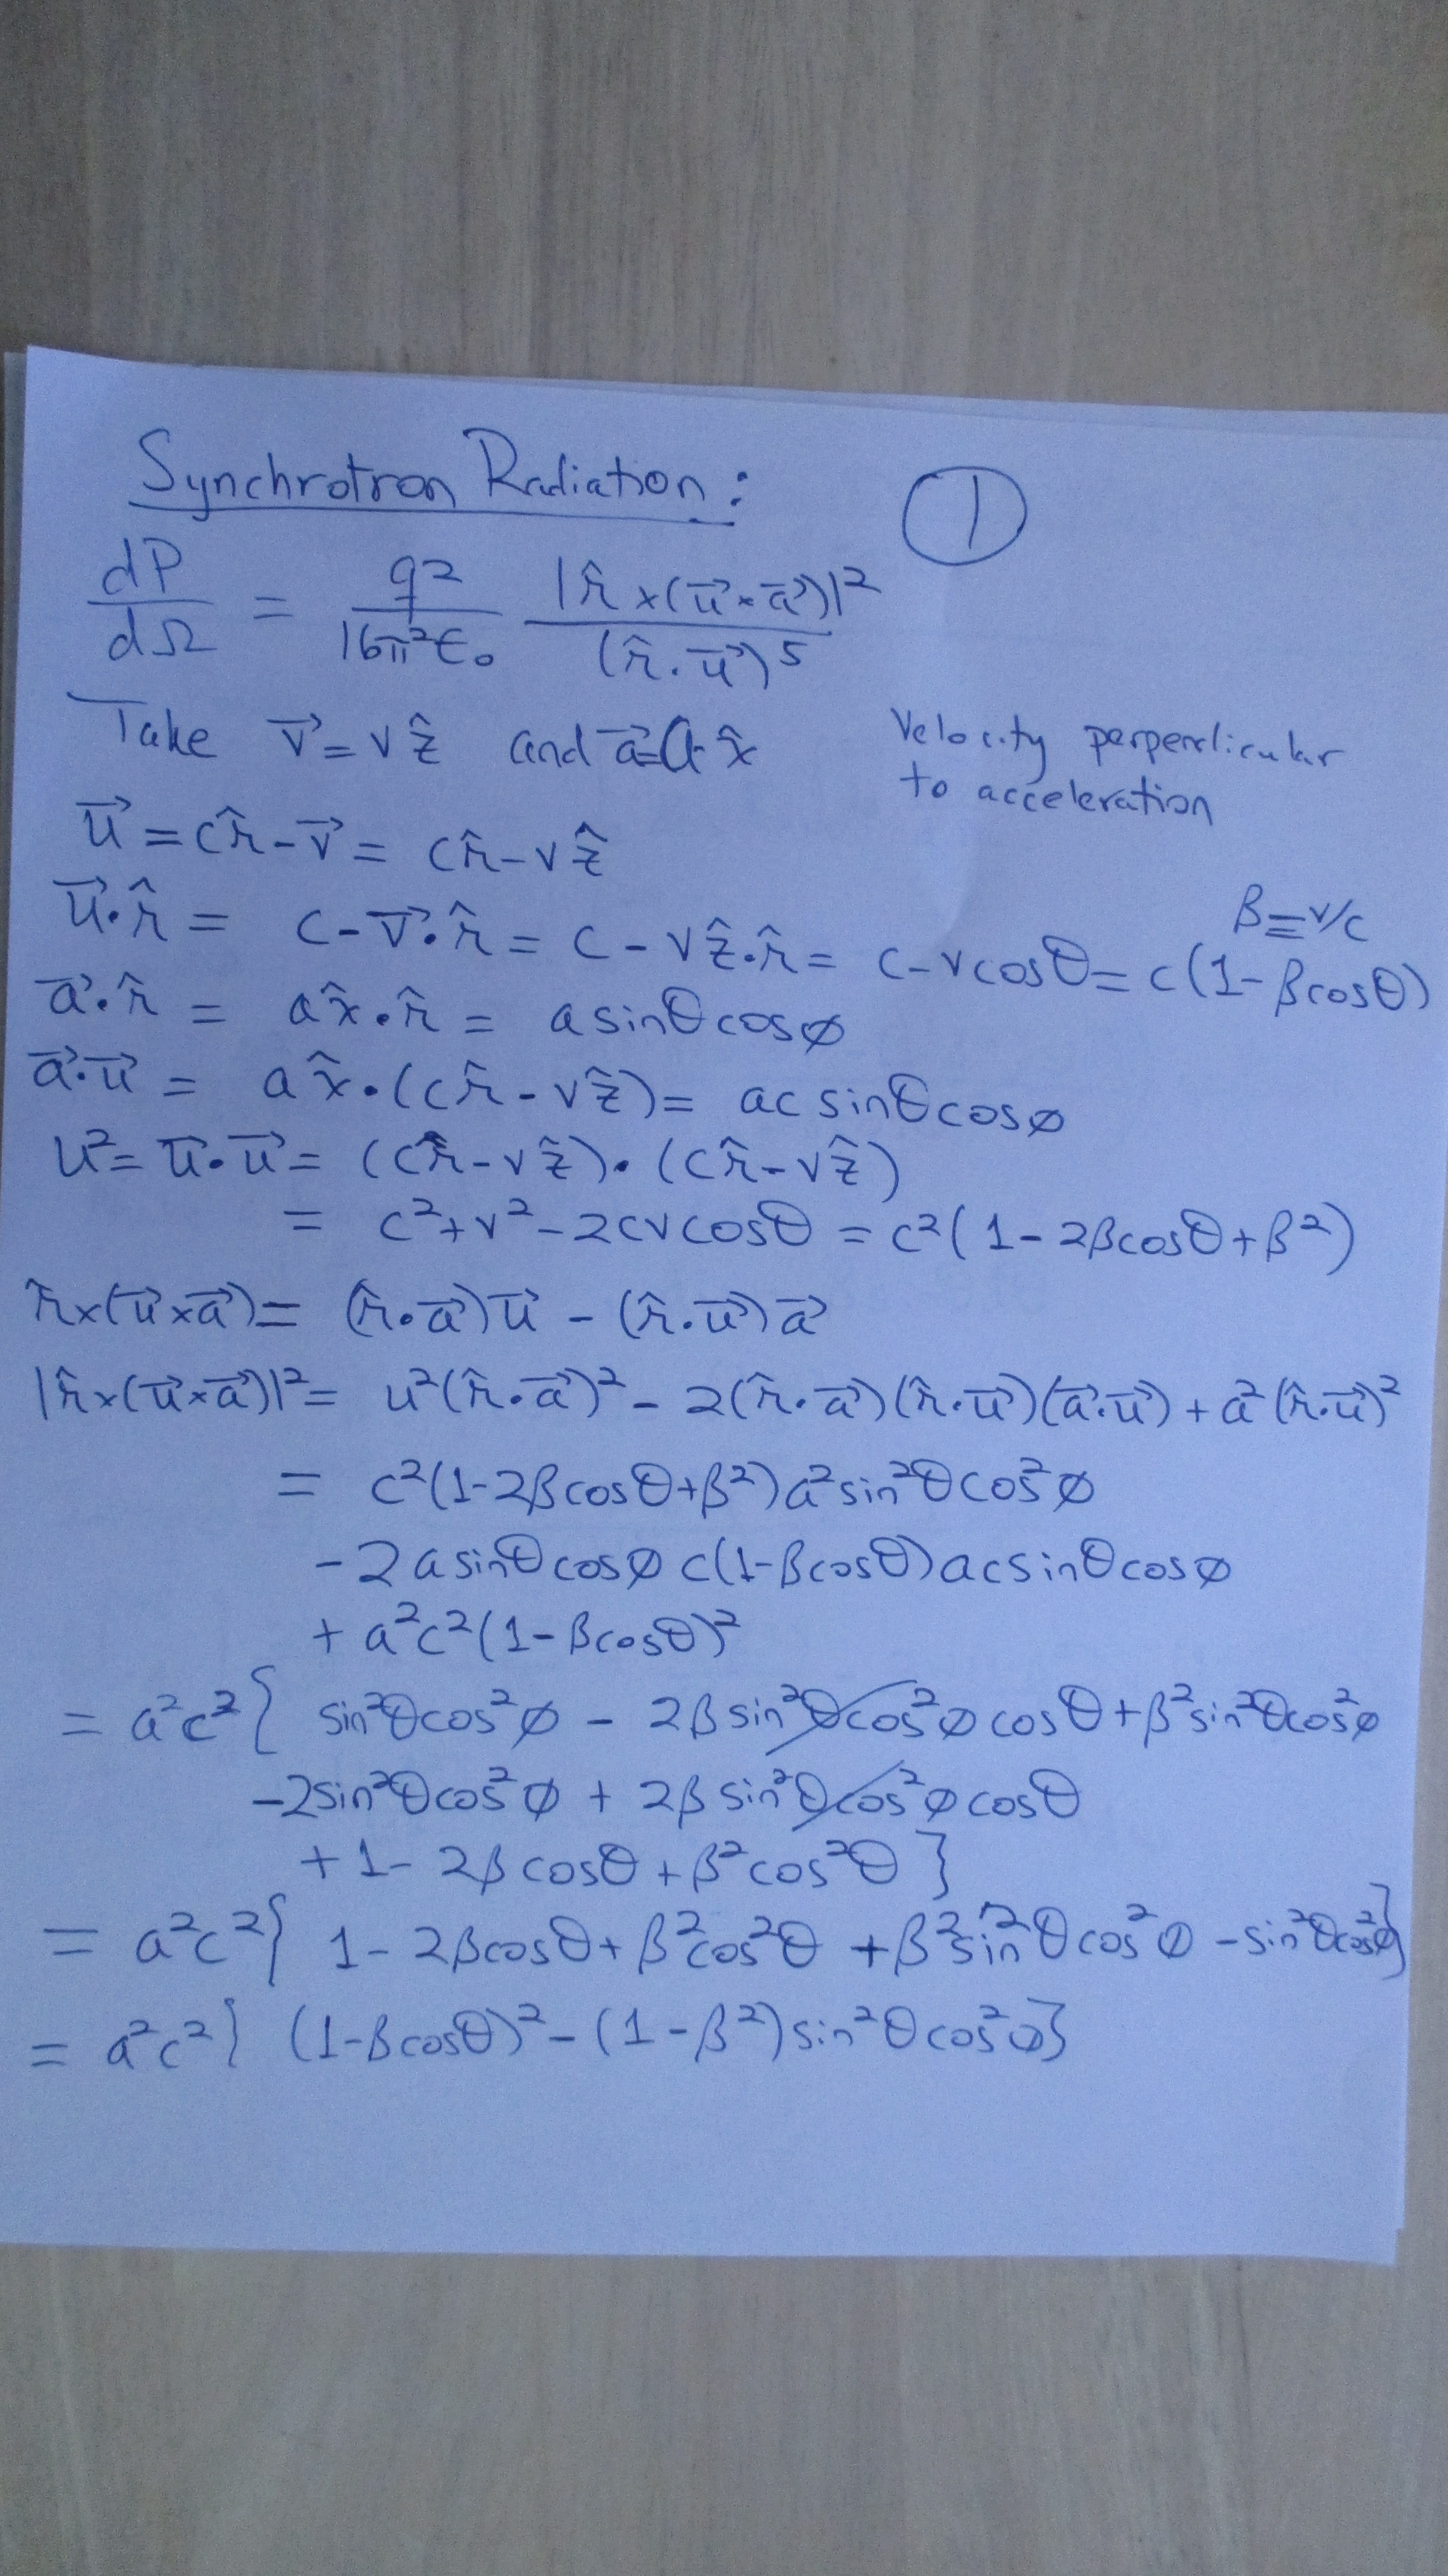 Synchrotron Radiation:
①
dP/dΩ = q²/16π²ε₀ |r̂×(u⃗×a⃗)|²/(r̂·u⃗)⁵
Take v⃗=vẑ and a⃗=a x̂
Velocity perpendicular
to acceleration
u⃗=cr̂-v⃗= cr̂-vẑ
u⃗·r̂ = c-v⃗·r̂= c-vẑ·r̂= c-vcosθ= c(1-βcosθ)
β≡v/c
a⃗·r̂ = ax̂·r̂ = a sinθcosø
a⃗·u⃗ = a x̂·(cr̂-vẑ)= ac sinθcosø
u²= u⃗·u⃗= (cr̂-vẑ)·(cr̂-vẑ)
= c²+v²-2cvcosθ = c²(1-2βcosθ+β²)
r̂×(u⃗×a⃗)= (r̂·a⃗)u⃗ - (r̂·u⃗)a⃗
|r̂×(u⃗×a⃗)|²= u²(r̂·a⃗)²-2(r̂·a⃗)(r̂·u⃗)(a⃗·u⃗)+a²(r̂·u⃗)²
= c²(1-2βcosθ+β²)a²sin²θcos²ø
-2a sinθcosø c(1-βcosθ)acsinθcosø
+ a²c²(1-βcosθ)²
= a²c²{ sin²θcos²ø - 2βsin²θcos²øcosθ+β²sin²θcos²ø
-2sin²θcos²ø + 2βsin²θcos²øcosθ
+1-2βcosθ+β²cos²θ }
= a²c²{ 1-2βcosθ+β²cos²θ +β²sin²θcos²ø -sin²θcos²ø}
= a²c²{ (1-βcosθ)²-(1-β²)sin²θcos²ø}